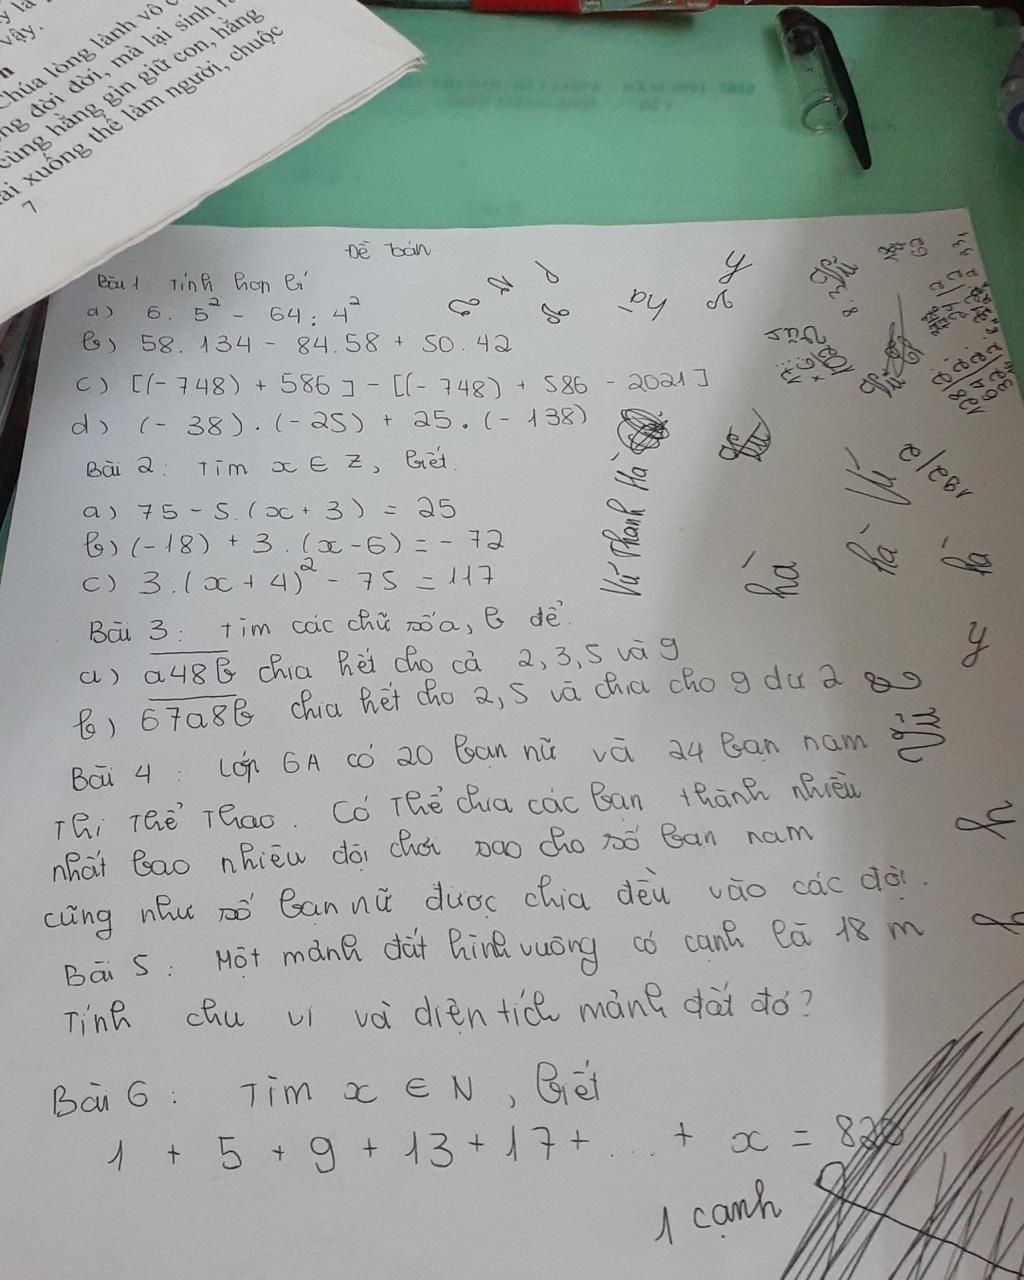 vậy.
Chúa lòng lành vô c
ng đời đời, mà lại sinh r
cùng hằng gìn giữ con, hằng
ại xuống thế làm người, chuộc
7
Đề bán
Bài 1 Tính hợp lí
a) 6. 5² - 64 : 4²
b) 58. 134 - 84.58 + 50. 42
c) [(- 748) + 586] - [(- 748) + 586 - 2021]
d) (- 38) . (- 25) + 25. (- 138)
Bài 2 : Tìm x ∈ Z, biết.
a) 75 - 5. (x + 3) = 25
b) (-18) + 3 . (x - 6) = - 72
c) 3.(x + 4)² - 75 = 117
Bài 3 : Tìm các chữ số a, b để.
a) a48b chia hết cho cả 2, 3, 5 và 9
b) 67a8b chia hết cho 2, 5 và chia cho 9 dư 2
Bài 4 : Lớp 6A có 20 bạn nữ và 24 bạn nam
Thi Thể Thao. Có Thể chia các bạn thành nhiều
nhất bao nhiêu đội chơi sao cho số bạn nam
cũng như số bạn nữ được chia đều vào các đội.
Bài 5 : Một mảnh đất hình vuông có cạnh là 18 m
Tính chu vi và diện tích mảnh đất đó?
Bài 6 : Tìm x ∈ N, biết
1 + 5 + 9 + 13 + 17 + ... + x = 820
1 cạnh
Vũ Thanh Hà
hà
hà
hà
Vũ
hà
192/2